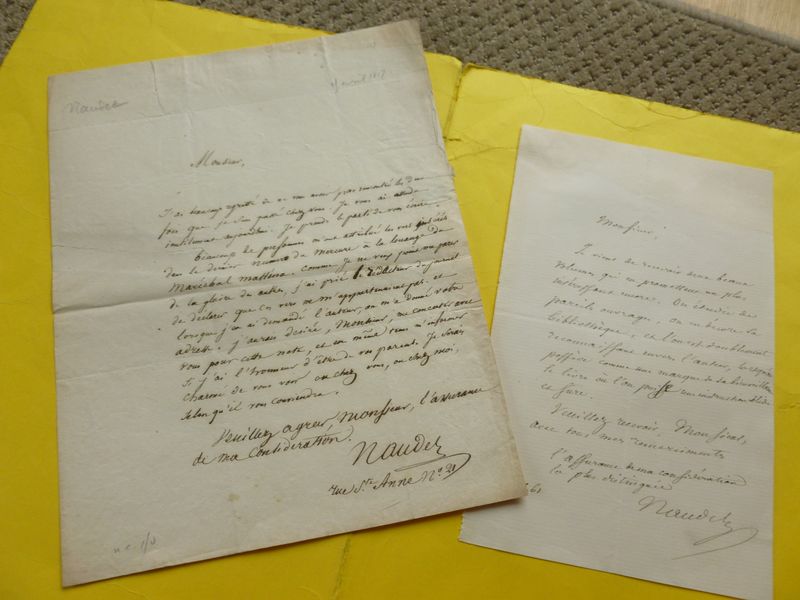 Naudet
avril 1817
Monsieur,
J'ai beaucoup regretté de ne vous avoir pas rencontré les deux
fois que je suis passé chez vous. Je vous ai attendu
inutilement aujourd'hui. Je prends le parti de vous écrire.
Beaucoup de personnes m'ont attribué les vers insérés
dans le dernier numéro du Mercure à la louange du
Maréchal Masséna. comme je ne veux point me parer
de la gloire des autres, j'ai prié le rédacteur du journal
de déclarer que ces vers ne m'appartenaient pas. et
lorsque j'en ai demandé l'auteur, on m'a donné votre
adresse. j'aurais désiré, Monsieur, me concerter avec
vous pour cette note, et en même tems m'informer
si j'ai l'honneur d'être de vos parents. Je serais
charmé de vous voir ou chez vous, ou chez moi,
selon qu'il vous conviendra.
Veuillez agréer, Monsieur, l'assurance
de ma considération.
Naudet
rue Ste Anne No. 21
Monsieur,
Je viens de recevoir deux beaux
volumes qui en promettent un plus
intéressant encore. On étudie de
pareils ouvrages, on en décore la
bibliothèque, et l'on est doublement
reconnaissant envers l'auteur,
comme une marque de
le livre où l'on puise une instruction
et sure.
Veuillez recevoir, Monsieur,
avec tous mes remerciements
l'assurance de ma considération
la plus distinguée
Naudet
61